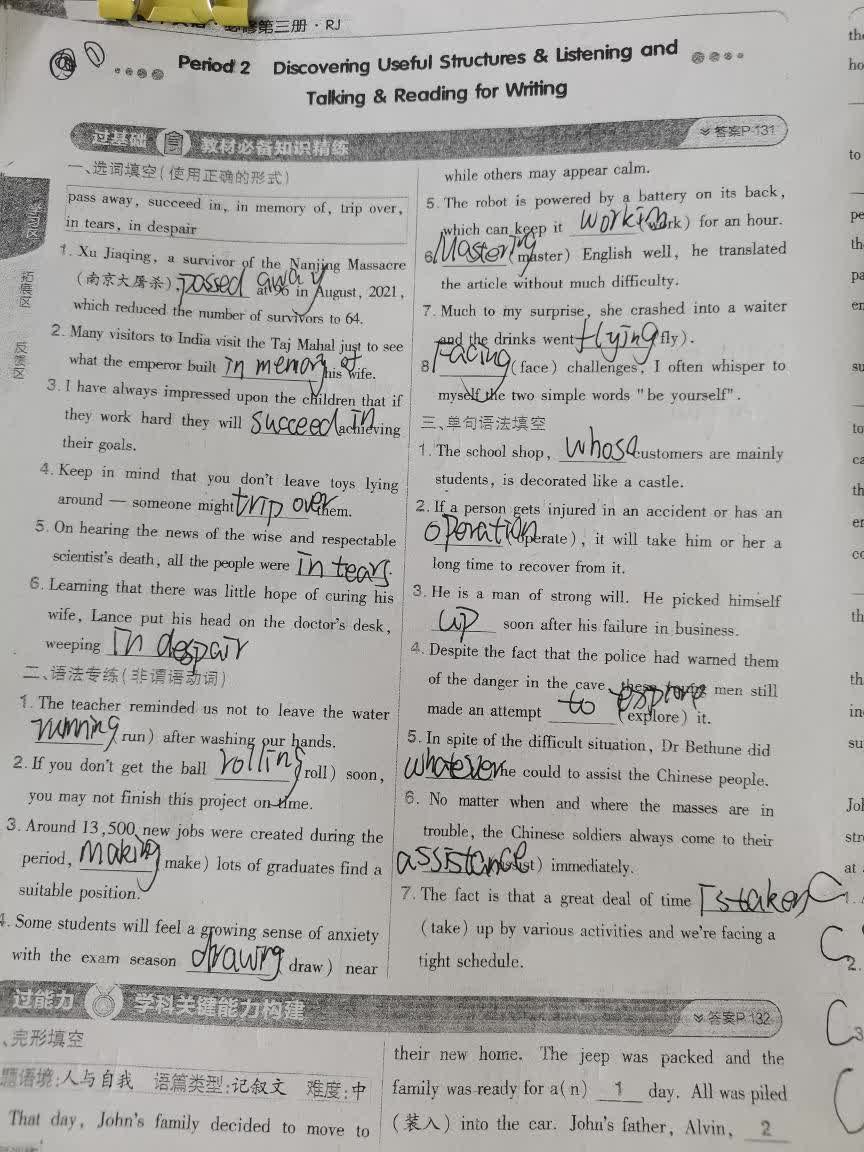 必修第三册·RJ
Period 2 Discovering Useful Structures & Listening and
Talking & Reading for Writing
过基础 教材必备知识精练
答案P-131
一、选词填空(使用正确的形式)
pass away, succeed in, in memory of, trip over,
in tears, in despair
1. Xu Jiaqing, a survivor of the Nanjing Massacre
(南京大屠杀), passed away at 96 in August, 2021,
which reduced the number of survivors to 64.
2. Many visitors to India visit the Taj Mahal just to see
what the emperor built in memory of his wife.
3. I have always impressed upon the children that if
they work hard they will succeed in achieving
their goals.
4. Keep in mind that you don't leave toys lying
around — someone might trip over them.
5. On hearing the news of the wise and respectable
scientist's death, all the people were in tears.
6. Learning that there was little hope of curing his
wife, Lance put his head on the doctor's desk,
weeping in despair
二、语法专练(非谓语动词)
1. The teacher reminded us not to leave the water
running (run) after washing our hands.
2. If you don't get the ball rolling (roll) soon,
you may not finish this project on time.
3. Around 13,500 new jobs were created during the
period, making (make) lots of graduates find a
suitable position.
4. Some students will feel a growing sense of anxiety
with the exam season drawing (draw) near
while others may appear calm.
5. The robot is powered by a battery on its back,
which can keep it working (work) for an hour.
6. Mastering (master) English well, he translated
the article without much difficulty.
7. Much to my surprise, she crashed into a waiter
and the drinks went flying (fly).
8. Facing (face) challenges, I often whisper to
myself the two simple words "be yourself".
三、单句语法填空
1. The school shop, whose customers are mainly
students, is decorated like a castle.
2. If a person gets injured in an accident or has an
operation (operate), it will take him or her a
long time to recover from it.
3. He is a man of strong will. He picked himself
up soon after his failure in business.
4. Despite the fact that the police had warned them
of the danger in the cave, these young men still
made an attempt to explore (explore) it.
5. In spite of the difficult situation, Dr Bethune did
whatever he could to assist the Chinese people.
6. No matter when and where the masses are in
trouble, the Chinese soldiers always come to their
assistance (assist) immediately.
7. The fact is that a great deal of time is taken
(take) up by various activities and we're facing a
tight schedule.
拓展区
反馈区
过能力 学科关键能力构建
答案P-132
、完形填空
题语境:人与自我 语篇类型:记叙文 难度:中
That day, John's family decided to move to
their new home. The jeep was packed and the
family was ready for a(n) 1 day. All was piled
(装入) into the car. John's father, Alvin, 2